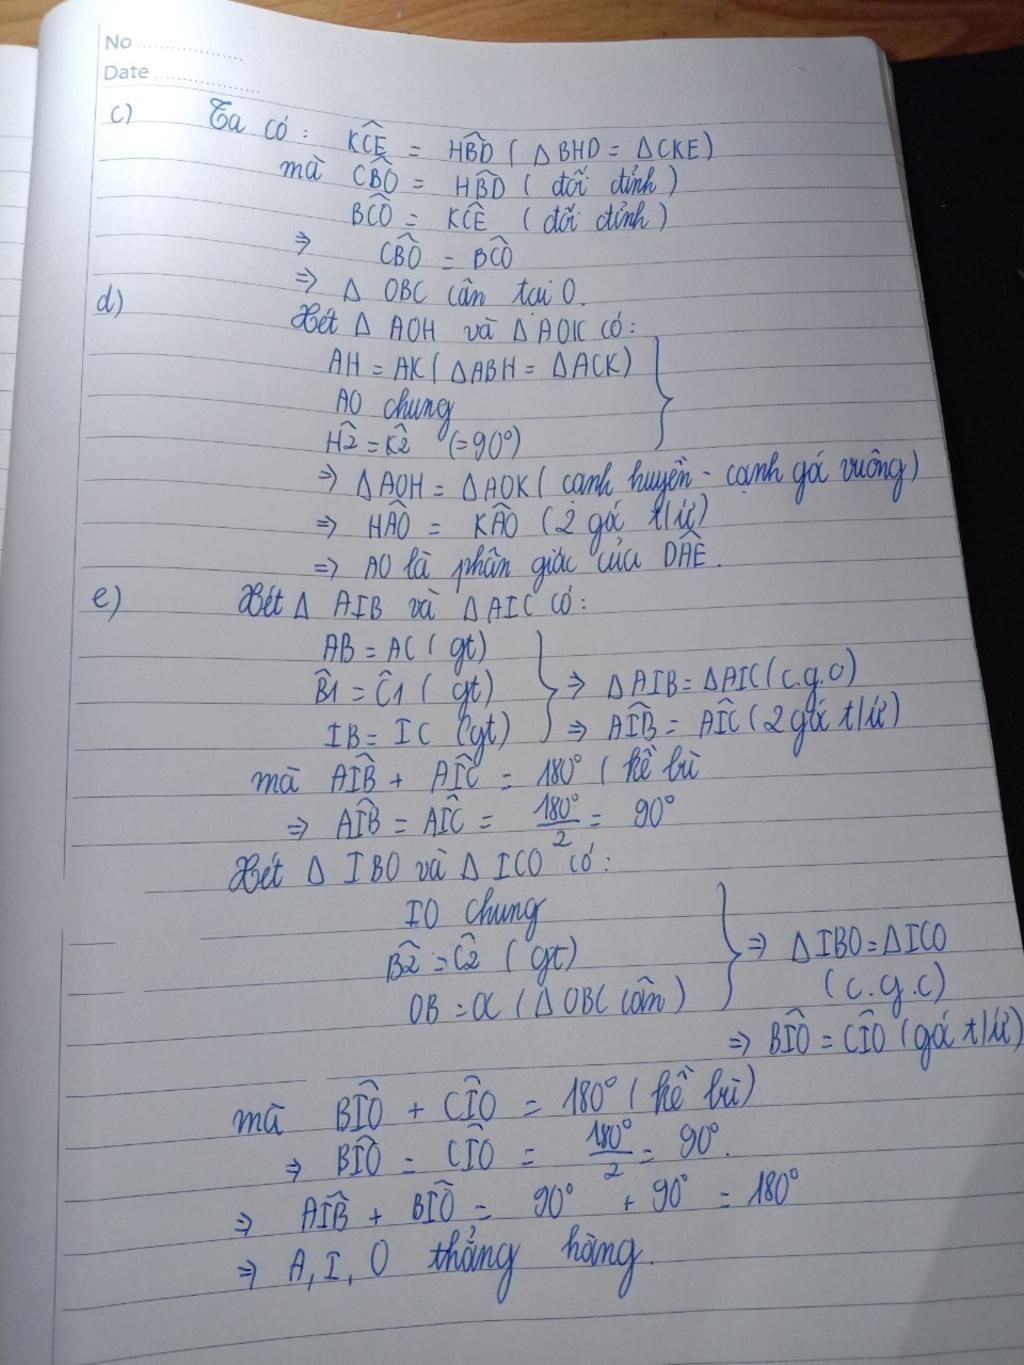 No
Date
c) Ta có: KĈE = HB̂D (△BHD = △CKE)
mà CB̂O = HB̂D (đối đỉnh)
BĈO = KĈE (đối đỉnh)
⇒ CB̂O = BĈO
⇒ △ OBC cân tại O.
d) Xét △ AOH và △AOK có:
AH = AK (△ABH = △ACK)
AO chung
Ĥ2 = K̂2 (=90°)
⇒ △AOH = △AOK (cạnh huyền - cạnh góc vuông)
⇒ HÂO = KÂO (2 góc t/ứ)
⇒ AO là phân giác của DÂE.
e) Xét △ AIB và △AIC có:
AB = AC (gt)
B̂1 = Ĉ1 (gt) ⇒ △AIB = △AIC (c.g.c)
IB = IC (gt) ⇒ AÎB = AÎC (2 góc t/ứ)
mà AÎB + AÎC = 180° (kề bù
⇒ AÎB = AÎC = 180°/2 = 90°
Xét △ IBO và △ ICO có:
IO chung
B̂2 = Ĉ2 (gt) ⇒ △IBO = △ICO
OB = OC (△OBC cân) (c.g.c)
⇒ BÎO = CÎO (góc t/ứ)
mà BÎO + CÎO = 180° (kề bù)
⇒ BÎO = CÎO = 180°/2 = 90°.
⇒ AÎB + BÎO = 90° + 90° = 180°
⇒ A, I, O thẳng hàng.